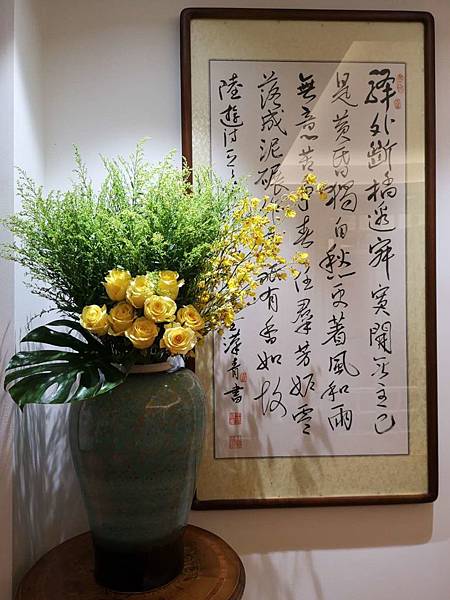 驛外斷橋邊寂寞開无主已
是黃昏獨自愁更著風和雨
無意苦爭春任羣芳妒零
落成泥碾作有香如故
陸游詞
書